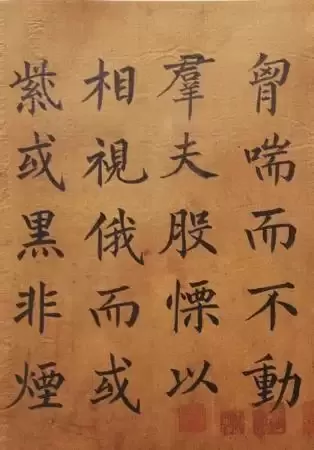 胷喘而不動
羣夫股慄以
相視俄而或
紫或黒非煙